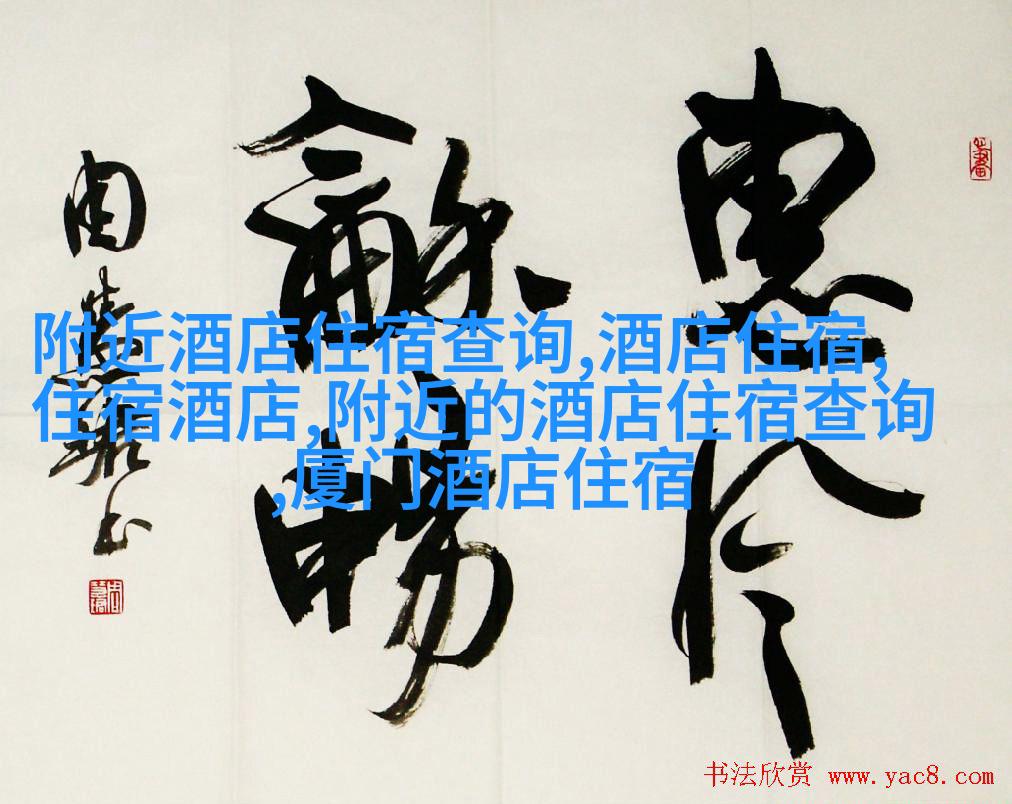 惠风
龢暢
周慧珺书
附近酒店住宿查询,酒店住宿,
住宿酒店,附近的酒店住宿查询
,厦门酒店住宿
书法欣赏 www.yac8.com